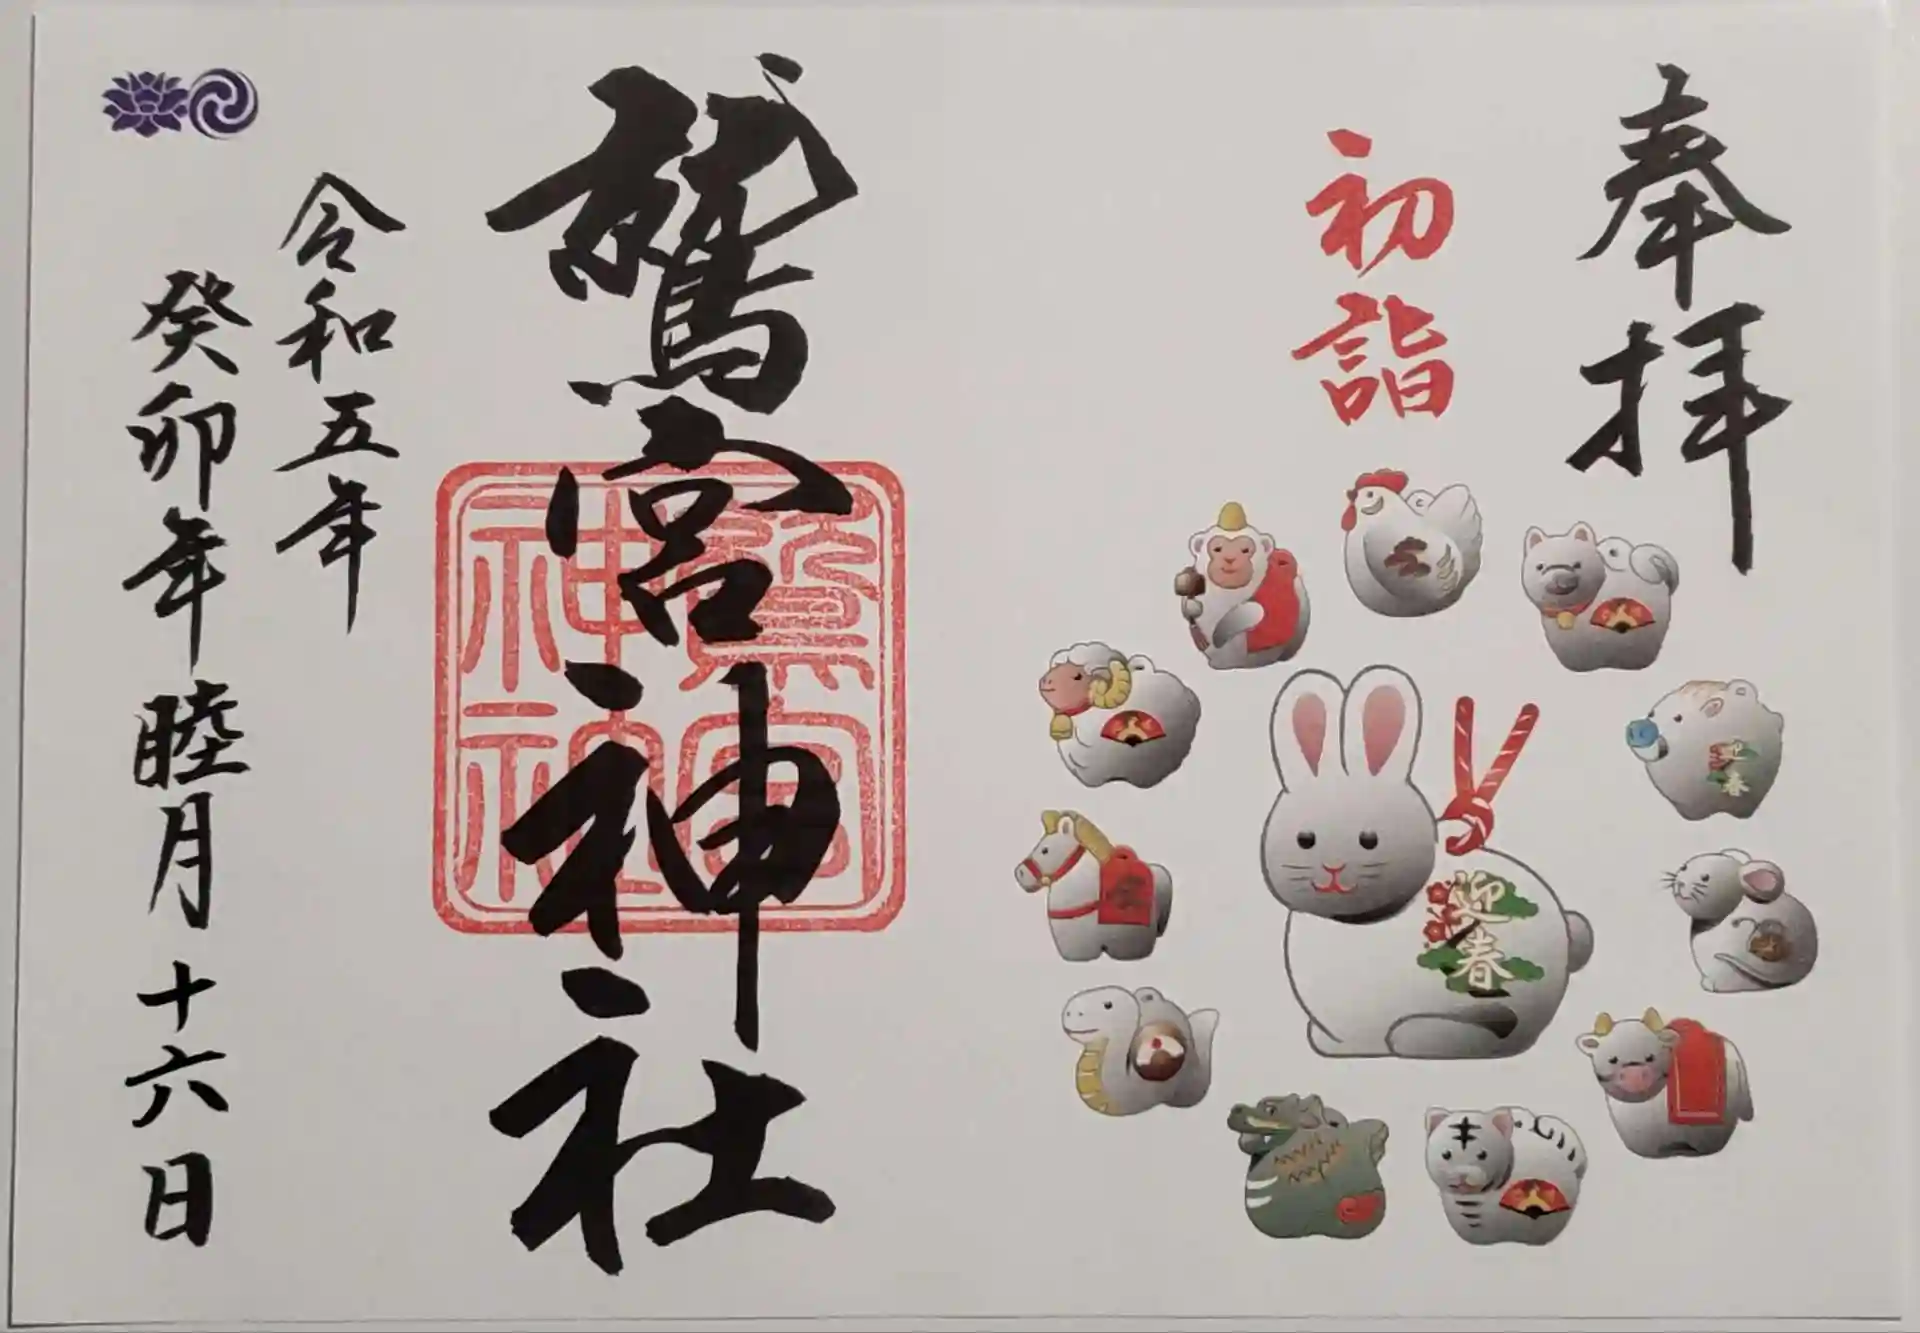 奉拝
初詣
迎春
迎春
鷲宮神社
鷲宮
神社
令和五年
癸卯年睦月十六日